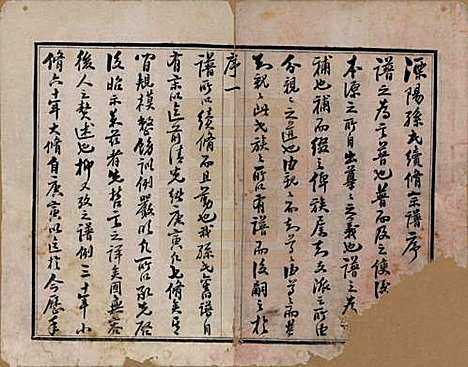 溧陽孫氏續修宗譜序
譜之為言普也普而及之使
本源之所自出尊之之義也譜之為
補也補而綴之俾族屬支派之所由
分親之之道也由親之而尊之由尊之而
親之此氏族之所以有譜而後嗣之於
序一
譜所以續修而且勤也我孫氏舊譜自
有宗以迄前清先
皆規模整飭訓例嚴以九所以承先啓
後昭示來茲者先哲言之詳矣固無容
後人之贅述也抑又考之譜例三十年小
脩六十年大脩自庚寅以迄於今歷年